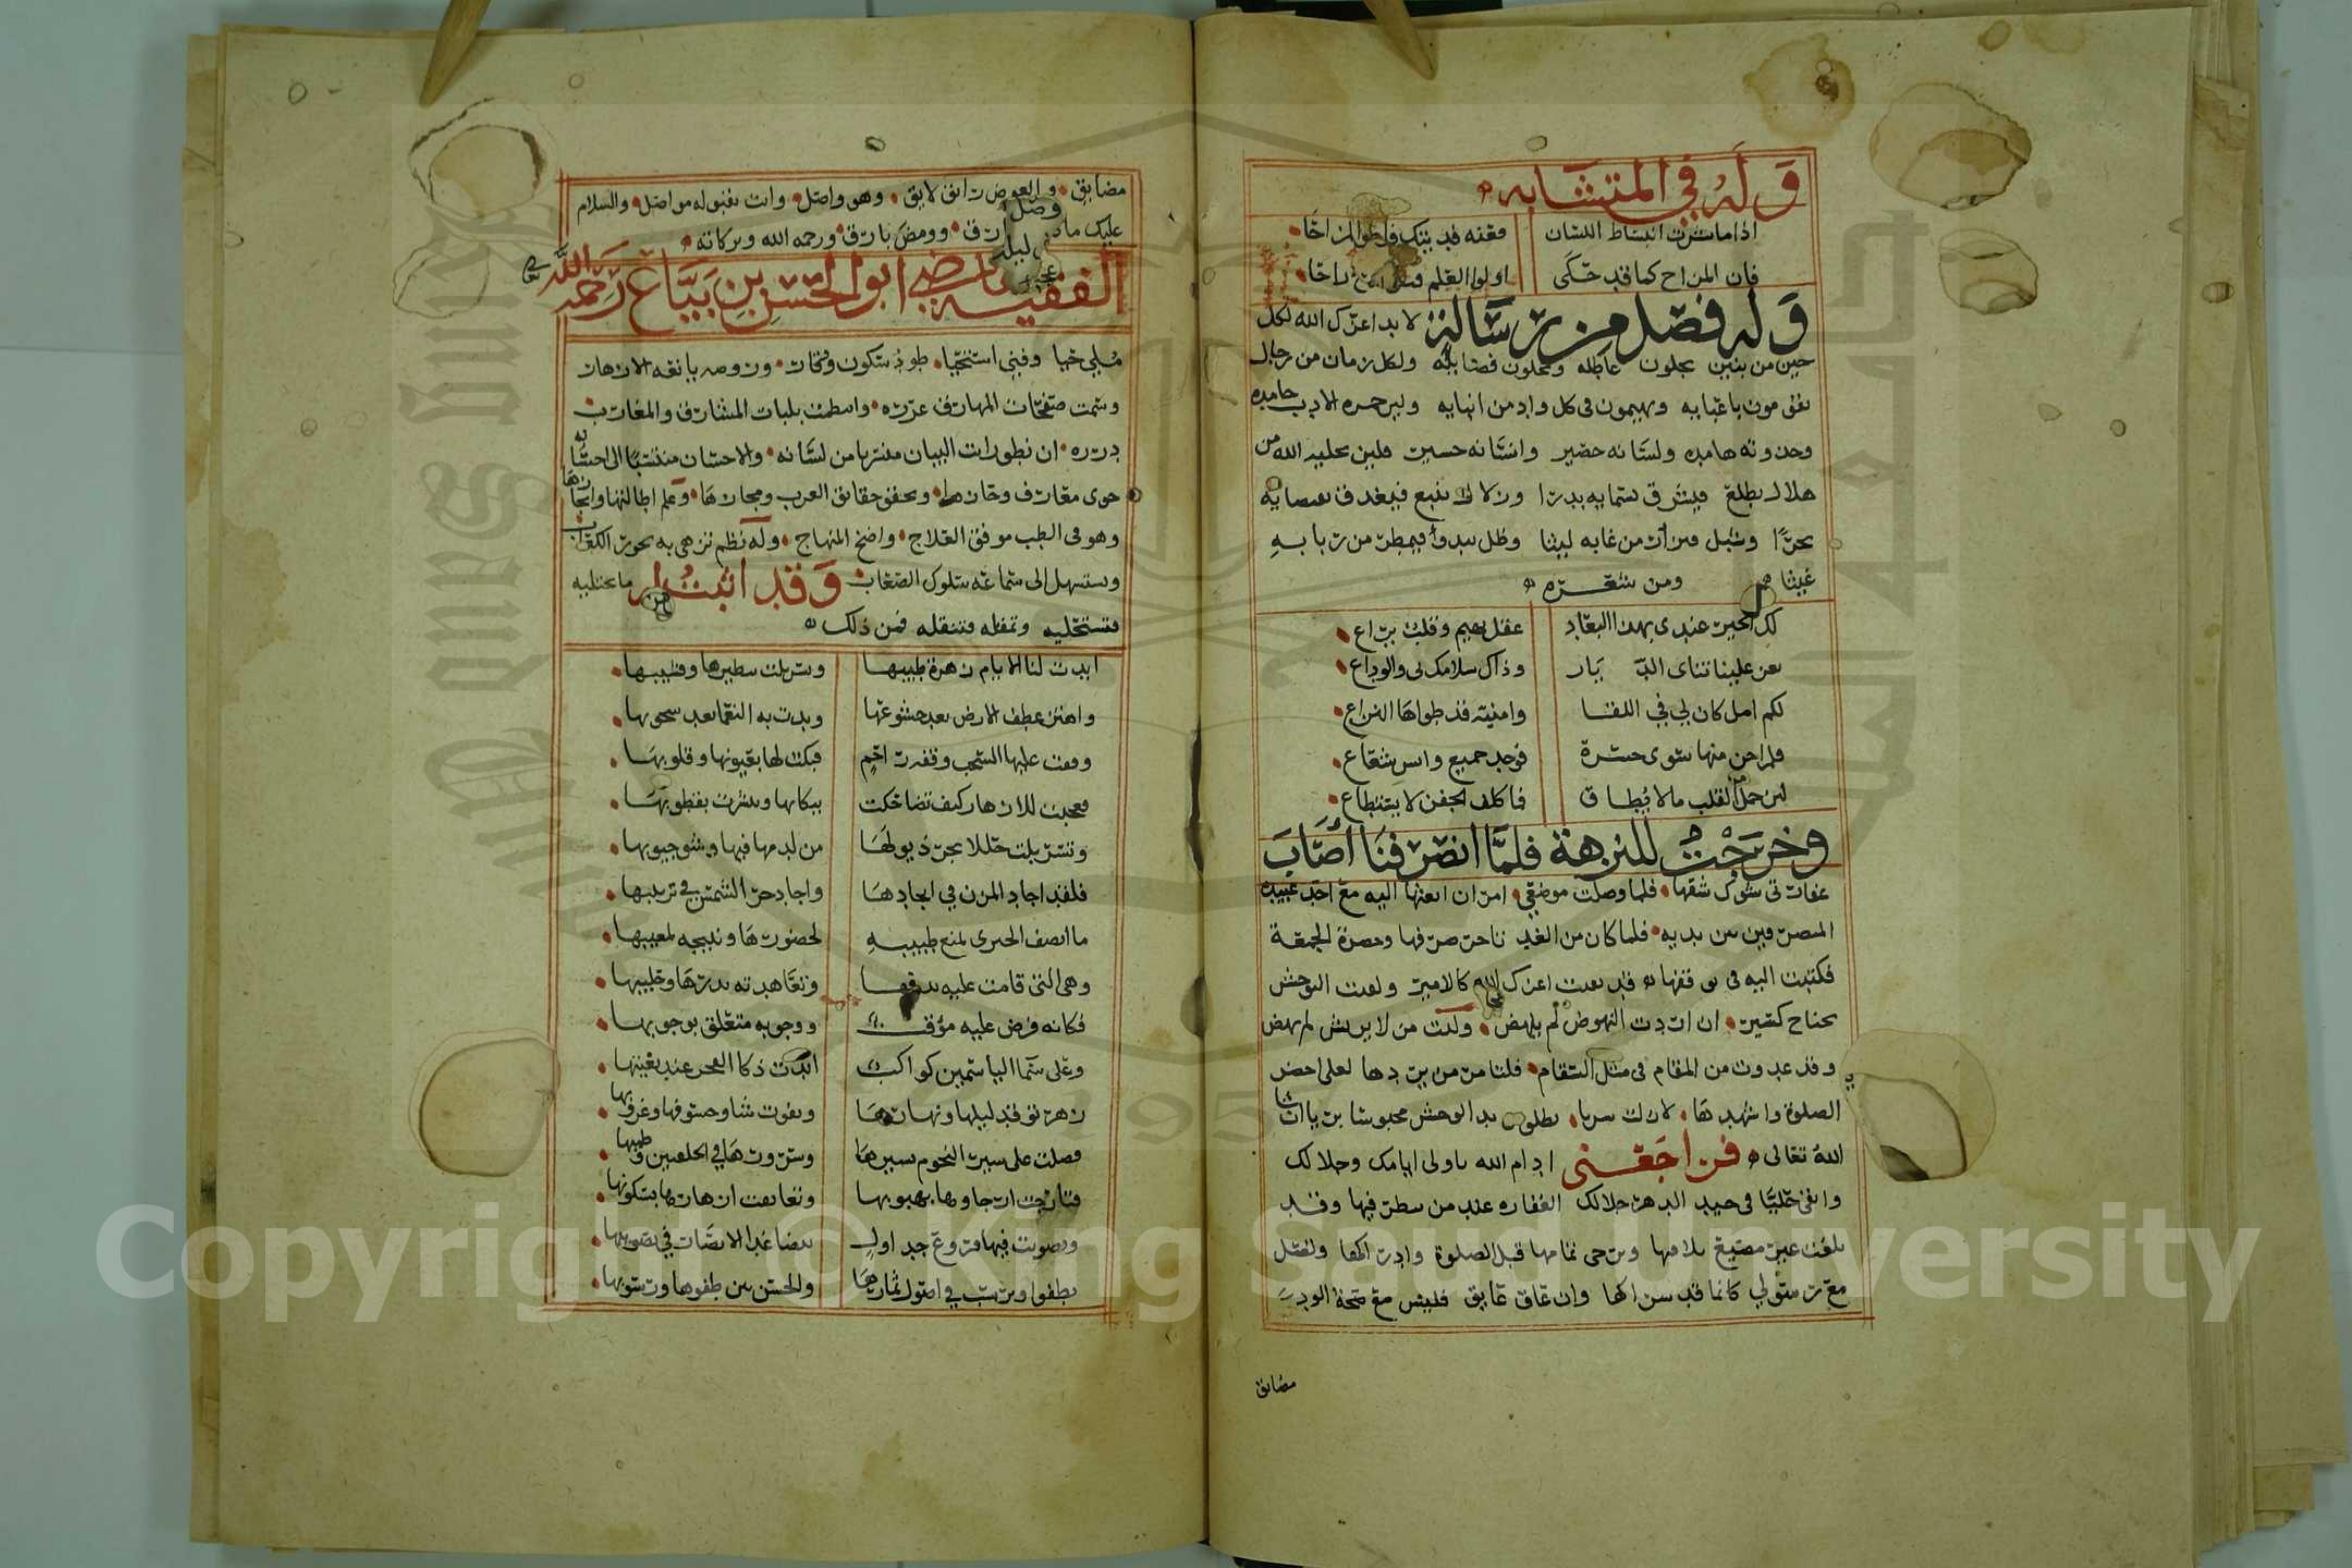 وَلَهُ في المتشابه
اذا ما شرت انبساط اللسان فعنه فديتك فاطو المزاحا
فان المزاح كما قد حكى اولوا العلم قبلي
وَله فصل من رسالة لا بد اعزك الله لكل
حين من بنين يجلون عاطله ويحلون فضايله ولكل زمان من رجال
يقومون باعبايه ويهيمون في كل واد من انبايه ولين حمره الادب خامده
وجذوته هامده ولسانه حصير وانسانه حسير فلن يخليه الله من
هلال يطلع فيشرق بسمايه بدرا وزلال ينبع فيغدق بفضايه
بحرًا وشبل يزأر من غابه ليثا وطل يبدأ فيمطر من ربابه
غيثا ومن شعره
لك الخير عندي بهذا البعاد عقل يهيم وقلب يراع
يعز علينا تناي الديار وذاك سلامك لي والوداع
لكم امل كان لي في اللقا وامنية قد طواها الزماع
فلم اجن منها سوى حسرة فوجد جميع وانس شعاع
لين حمل القلب ما لا يطاق فما كلف الجفن لا يستطاع
وخرجت للنزهة فلما انصرفنا أصاب
غفارتي شوك شقها فلما وصلت موضعي امر ان ابعثها اليه مع احد عبيده
المتصرفين بين يديه فلما كان من الغد تاخر صرفها وحضرة الجمعة
فكتبت اليه في توقفها قد بقيت اعزك الله كالاسير ولقيت التوحش
بجناح كسير ان اردت النهوض لم ينهض وليت من لا يريش لم يهض
وقد غدوت من المقام في مثل السقام فلتامر من يردها لعلي احضر
الصلوة واشهدها لا زلت سريا تطلع بدا لوحش محبوسا بريا ان شا
الله تعالى فراجعني ادام الله يا ولي ايامك وحلالك
وابقى حليًا في جيد الدهر خلالك الغفاره عند من سطر فيها وقد
بلغت غير مضيع تلافيها ويرجى تمامها قبل الصلوة وادراكها ونصل
مع رسولي كانما قد شراكها وان عاق عايق فليس مع صحة الود
مضايق
مضايق والعوض رايق لايق وهو واصل وانت بقبوله مواصل والسلام
عليك ما ذر شارق وومض بارق ورحمه الله وبركاته
الفقيه القاضي ابو الحسن بن بياع رَحمه الله
مبلي حيا وفتى استحيا طود سكون ووقار وروضه يانعه الازهار
وسمت صفحات المهارق غرره وانتظمت بلبات المشارق والمغارب
درره ان نطق رايت البيان منسربا من لسانه والاحسان منتسبًا الى احسانه
حوى معارف وحازها وتحقق حقايق العرب ومجازها وعلم اطالتها وايجازها
وهو في الطب موفق العلاج واضح المنهاج وله نظم تزهى به نحور الكعاب
ويستسهل الى سماعه سلوك الصعاب وَقد اثبت له من ما تجتليه
وتستحليه وتمله وتنقله فمن ذلك
ابدت لنا الايام زهرة طيبها وتسربلت بنضيرها وقشيبها
واهتز عطف الارض بعد خشوعها وبدت به النعما بعد شحوبها
وقفت عليها السحب وقفة راحم فبكت لها بعيونها وقلوبها
فعجبت للازهار كيف تضاحكت ببكايها وتبشرت بقطوبها
وتسربلت حللا تجر ذيولها من لدمها فيها وشق جيوبها
فلقد اجاد المزن في انجادها واجاد حر الشمس في تربيبها
ما انصف الخيرى يمنع طيبه لحضورها ويبيحه لمغيبها
وهي التي قامت عليه بدفعها وتعاهدته بدرها وحليبها
فكانه فرض عليه مؤقت ووجوبه متعلق بوجوبها
وعلى سما الياسمين كواكب ابدت ذكا العجز عند مغيبها
زهر توقد ليلها ونهارها وتفوت شاو خسوفها وغروبها
فضلت على سير النجوم بسيرها وسرورها في الخلفين وطيبها
فتارجت ارجاوها بهبوبها وتعانقت ازهارها بسكونها
وتصوبت فيها فروع جداول تتضاعد الابصار في تصويبها
تطفوا وترسب في اصول ثمارها والحسن بين طفوها ورسوبها
Copyright © King Saud University